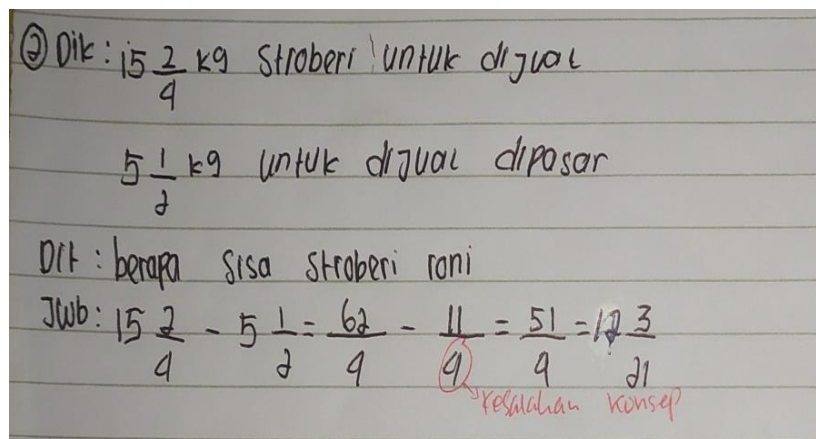 ② Dik : 15 2/4 kg stroberi untuk dijual
5 1/2 kg untuk dijual dipasar
Dit : berapa sisa stroberi roni
Jwb : 15 2/4 - 5 1/2 = 62/4 - 11/4 = 51/4 = 12 3/21
kesalahan konsep